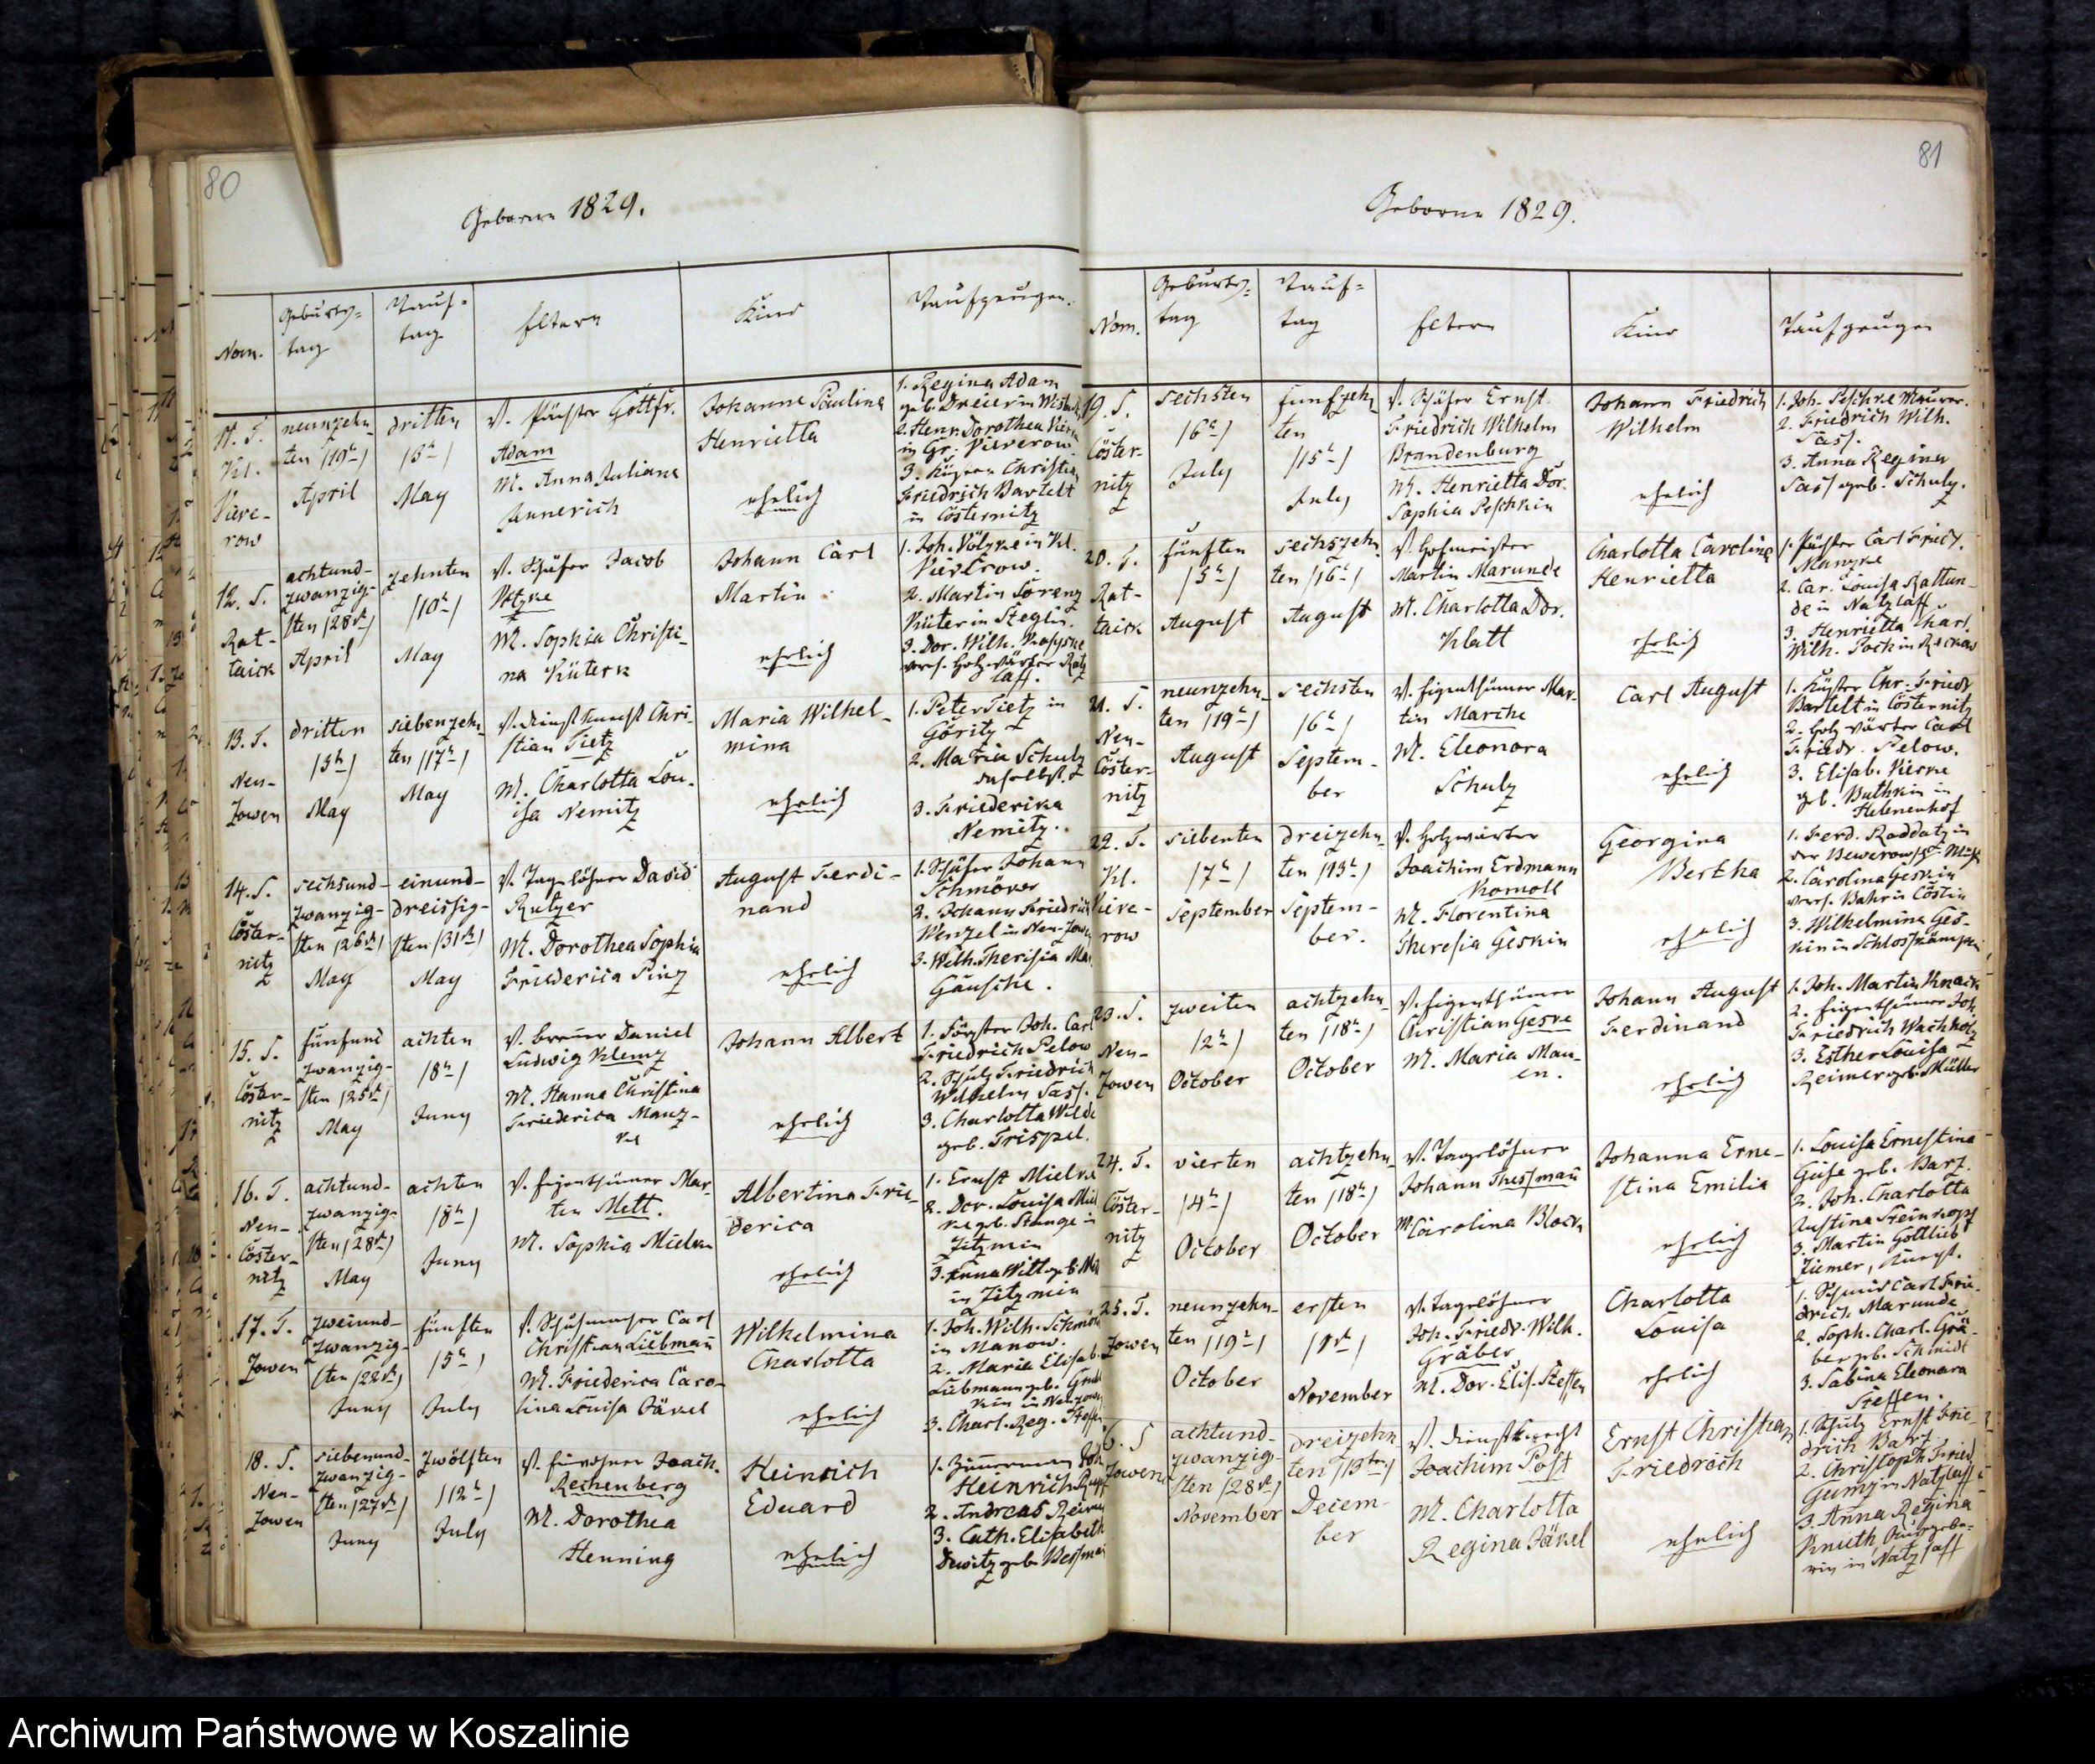 80
Geborne 1829.
Nom.
Geburts-
tag
Tauf-
tag
Eltern
Kind
Taufzeugen.
11. T.
Kl.
Vieve-
row
neunzehn-
ten /19t/
April
dritten
/3t/
May
V. Pächter Gottfr.
Adam
M. Anna Juliana
Johanne Pauline
Henrietta
ehelich
1. Regina Adam
geb. Dreier in
2. Henr. Dorothea
in Gr. Vieverow.
3. Küster Christian
Friedrich Bartelt
in Cösternitz
12. S.
Rat-
taick
achtund-
zwanzig-
sten /28st/
April
zehnten
/10t/
May
V. Schäfer Jacob
M. Sophia Christi-
na Küterk
Johann Carl
Martin
ehelich
1. Joh. Völzke in Kl.
Vieverow.
2. Martin Lorenz
Küter in Steglin.
3. Dor. Wilh.
vers. Holzwärter Ratz
laff.
13. T.
Neu-
Zowen
dritten
/3t/
May
siebenzehn-
ten /17t/
May
V. Dienstknecht Chri-
stian Tietz
M. Charlotta Lou-
isa Nemitz
Maria Wilhel-
mina
ehelich
1. Peter Tietz in
Göritz
2. Maria Schulz
daselbst.
3. Friederika
Nemitz.
14. S.
Cöster-
nitz
sechsund-
zwanzig-
sten /26st/
May
einund-
dreissig-
sten /31st/
May
V. Tagelöhner David
Rutzer
M. Dorothea Sophia
Friederica Pinz
August Ferdi-
nand
ehelich
1. Schäfer Johann
Schmöker
2. Johann Friedrich
Wenzel in Neu-Zowen
3. Wilh. Theresia
Gäusche.
15. S.
Cöster-
nitz
fünfund
zwanzig-
sten /25st/
May
achten
/8t/
Juny
V. Brauer Daniel
Ludwig Klemz
M. Hanna Christina
Friederica Manz-
ke
Johann Albert
ehelich
1. Förster Joh. Carl
Friedrich Pelow
2. Schulz Friedrich
Wilhelm Sass.
3. Charlotta Wilde
geb. Trispel.
16. T.
Neu-
Cöster-
nitz
achtund-
zwanzig-
sten /28st/
May
achten
/8t/
Juny
V. Eigenthümer Mar-
tin Mett.
M. Sophia Mielke
Albertina Frie-
derica
ehelich
1. Ernst Mielke
2. Dor. Louisa
ke geb. Stange in
Zitzmin
3. Anna Witt geb.
in Zitzmin
17. T.
Zowen
zweiund-
zwanzig-
sten /22st/
Juny
fünften
/5t/
July
V. Schuhmacher Carl
Christian Liebman̄
M. Friederica Caro-
lina Louisa Jäkel
Wilhelmina
Charlotta
ehelich
1. Joh. Wilh.
in Manow.
2. Maria Elisab.
Liebmann geb.
in Neuzowen
3. Charl. Reg. Steffen
18. S.
Neu-
Zowen
siebenund-
zwanzig-
sten /27st/
Juny
zwölften
/12t/
July
V. Einwohner Joach.
Rechenberg
M. Dorothea
Henning
Heinrich
Eduard
ehelich
1. Zimmerman Joh.
Heinrich
2. Andreas
3. Cath. Elisabeth
Dewitz geb.
81
Geborne 1829.
Nom.
Geburts-
tag
Tauf-
tag
Eltern
Kind
Taufzeugen
19. S.
Cöster-
nitz
sechsten
/6t/
July
funfzehn-
ten
/15t/
July
V. Schäfer Ernst
Friedrich Wilhelm
Brandenburg
M. Henrietta Dor.
Sophia Peschkin
Johann Friedrich
Wilhelm
ehelich
1. Joh. Peschke Maurer.
2. Friedrich Wilh.
Sass.
3. Anna Regina
Sass geb. Schulz.
20. T.
Rat-
taick
fünften
/5t/
August
sechszehn-
ten /16t/
August
V. Hofmeister
Martin Marunde
M. Charlotta Dor.
Klatt
Charlotta Carolina
Henrietta
ehelich
1. Pächter Carl Friedr.
Manzke
2. Car. Louisa Rattun-
de in Natzlaff
3. Henrietta Charl.
Wilh. Pock in Reckow
21. S.
Neu-
Cöster-
nitz
neunzehn-
ten /19t/
August
sechsten
/6t/
Septem-
ber
V. Eigenthümer Mar-
tin Marche
M. Eleonora
Schulz
Carl August
ehelich
1. Küster Chr. Friedr
Bartelt in Cösternitz
2. Holzwärter Carl
Friedr. Pelow.
3. Elisab. Kieske
geb. Buthkin in
Helenenhof
22. T.
Kl.
Vieve-
row
siebenten
/7t/
September
dreizehn-
ten /13t/
Septem-
ber.
V. Holzwärter
Joachim Erdmann
Komoll
M. Florentina
Theresia Geskin
Georgina
Bertha
ehelich
1. Ferd. Raddatz in
2. Carolina Geskin
vers. Bahr in Cöslin
3. Wilhelmina Ges-
kin in Schlosskämpen
23. S.
Neu-
Zowen
zweiten
/2t/
October
achtzehn-
ten /18t/
October
V. Eigenthümer
Christian Geske
M. Maria Mau-
en.
Johann August
Ferdinand
ehelich
1. Joh. Martin Knaack
2. Eigenthümer Joh.
Friedrich Wachholz
3. Esther Louisa
Reimer geb. Müller
24. T.
Cöster-
nitz
vierten
/4t/
October
achtzehn-
ten /18t/
October
V. Tagelöhner
Johann Thessman̄
M. Carolina Block
Johanna Erne-
stina Emilia
ehelich
1. Louisa Ernestina
Guse geb. Barz.
2. Joh. Charlotta
Justina Steinkopf
3. Martin Gottlieb
Ziemer, Knecht.
25. T.
Zowen
neunzehn-
ten /19t/
October
ersten
/1st/
November
V. Tagelöhner
Joh. Friedr. Wilh.
Gräber
M. Dor. Elis. Steffen
Charlotta
Louisa
ehelich
1. Schmid Carl Frie-
drich Marunde
2. Soph. Charl. Grä-
ber geb. Schmidt
3. Sabina Eleonora
Steffen.
26. S
Zowen
achtund-
zwanzig-
sten /28st/
November
dreizehn
ten /13ten/
Decem-
ber
V. Dienstknecht
Joachim Post
M. Charlotta
Regina Jäkel
Ernst Christian
Friedrich
ehelich
1. Schulz Ernst Frie-
drich Barz.
2. Christoph Fried.
Gumz in Natzlaff
3. Anna Regina
Knuth,
rin in Natzlaff
Archiwum Państwowe w Koszalinie